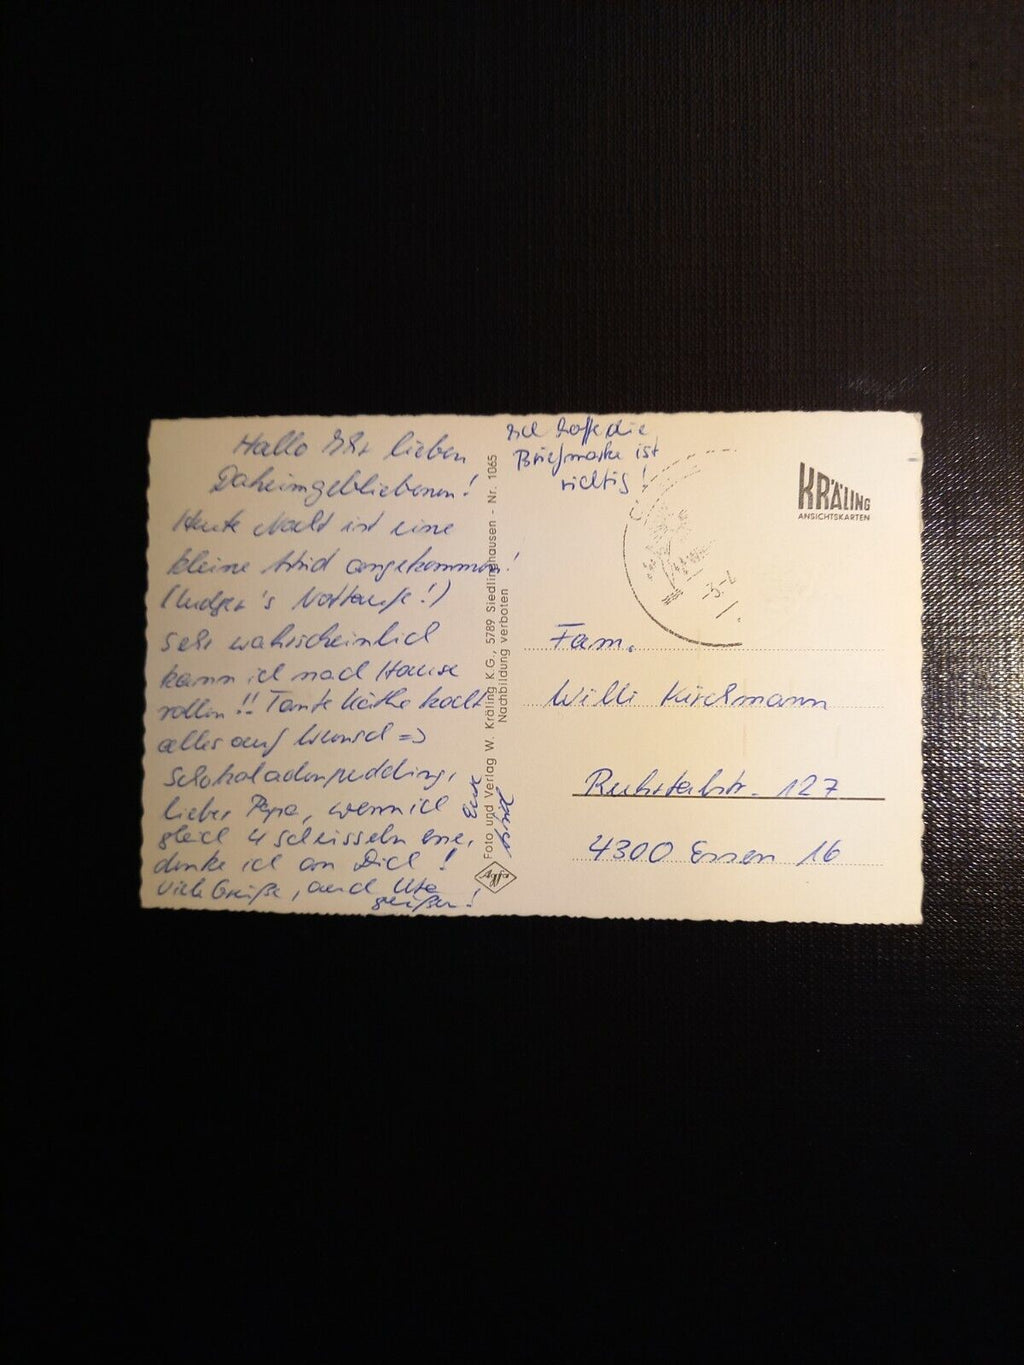 Hallo Ihr lieben
Daheimgebliebenen!
Heute Nacht ist eine
kleine Astrid angekommen!
(Ludger's Nottaufe!)
Sehr wahrscheinlich
kann ich nach Hause
rollen!! Tante Käthe kocht
alles auf Wunsch =>
Schokoladenpudding,
lieber Papa, wenn ich
gleich 4 Schüsseln esse,
denke ich an Dich!
Viele Grüße, auch Ute
grüßen!
Eure
Astrid
Ich hoffe die
Briefmarke ist
richtig!
Foto und Verlag W. Kräling K.G., 5789 Siedlinghausen - Nr. 1065
Nachbildung verboten
Agfa
KRÄLING
ANSICHTSKARTEN
Fam.
Willi Kirchmann
Ruhrtalstr. 127
4300 Essen 16